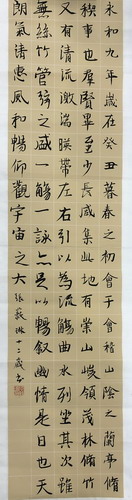 永和九年歲在癸丑暮春之初會于會稽山陰之蘭亭脩
禊事也群賢畢至少長咸集此地有崇山峻領茂林脩竹
又有清流激湍暎帶左右引以為觴曲水列坐其次雖
無絲竹管弦之盛一觴一詠亦足以暢叙幽情是日也天
朗氣清惠風和暢仰觀宇宙之大
張 琳 十二歲書